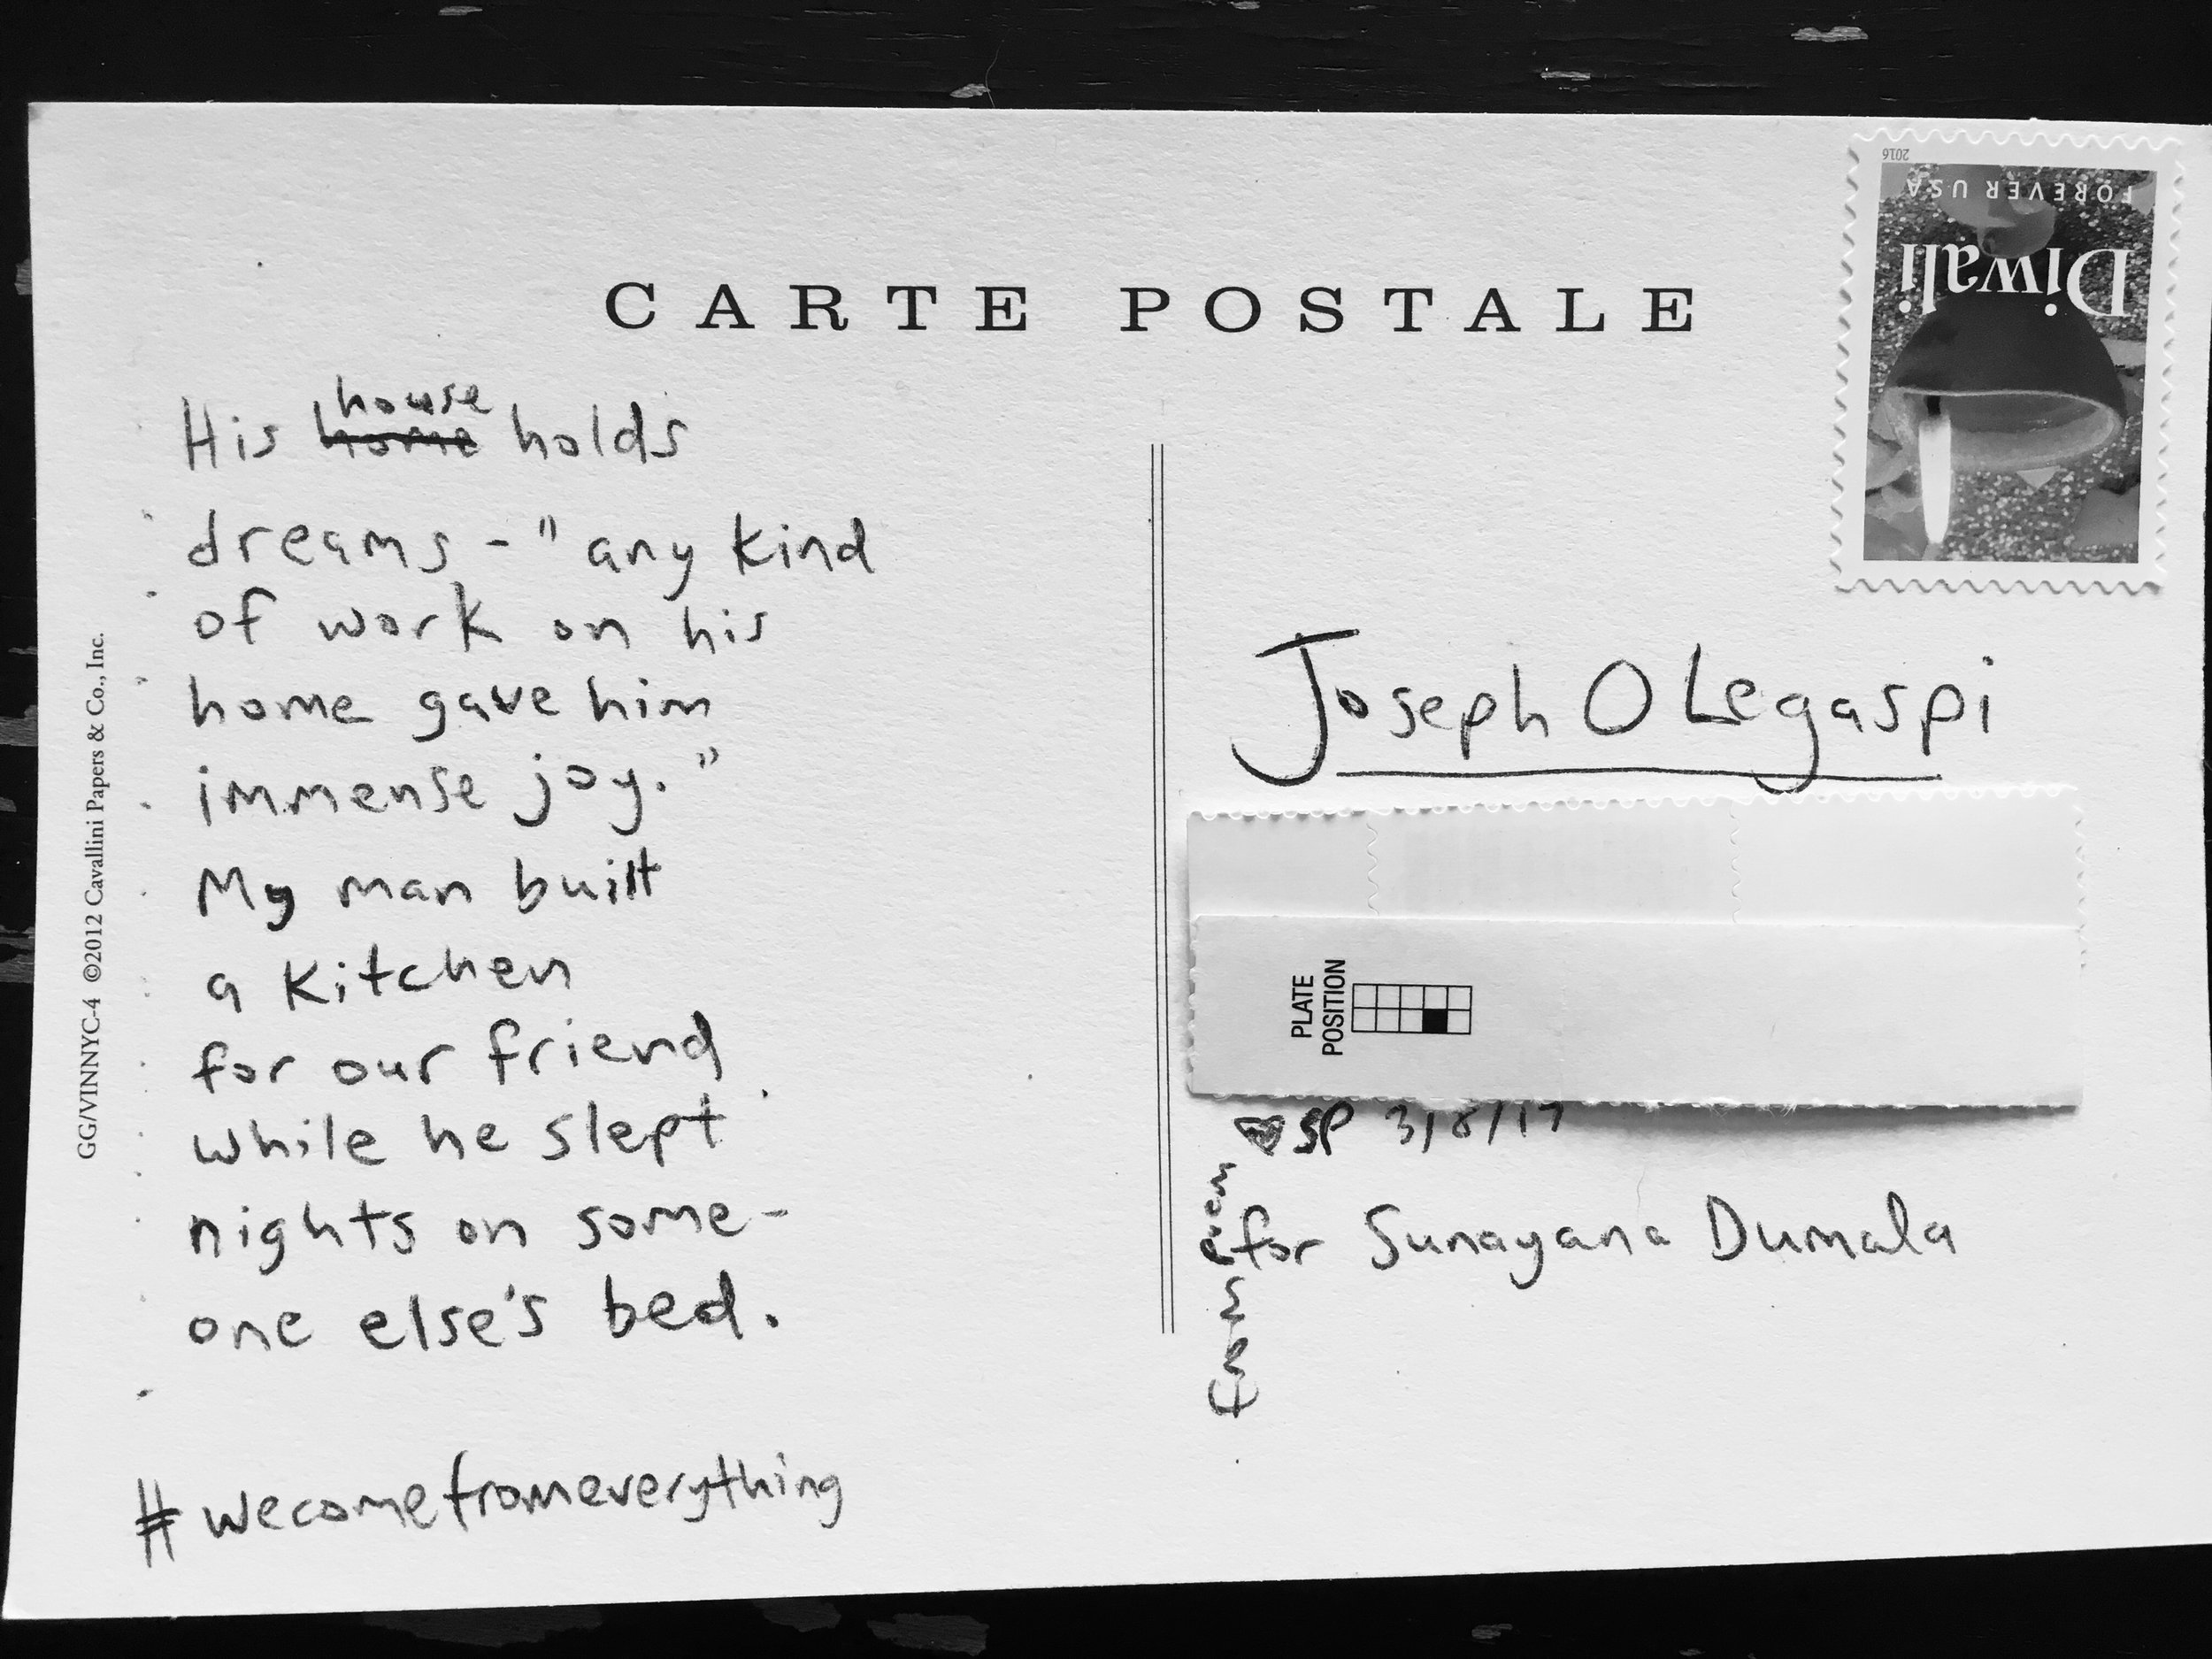 CARTE POSTALE
2016
FOREVER USA
Diwali
His home house holds
dreams - "any kind
of work on his
home gave him
immense joy."
My man built
a kitchen
for our friend
while he slept
nights on some-
one else's bed.
#wecomefromeverything
GG/VINNYC-4 ©2012 Cavallini Papers & Co., Inc.
Joseph O Legaspi
PLATE
POSITION
SP 3/8/17
for Sunayana Dumala